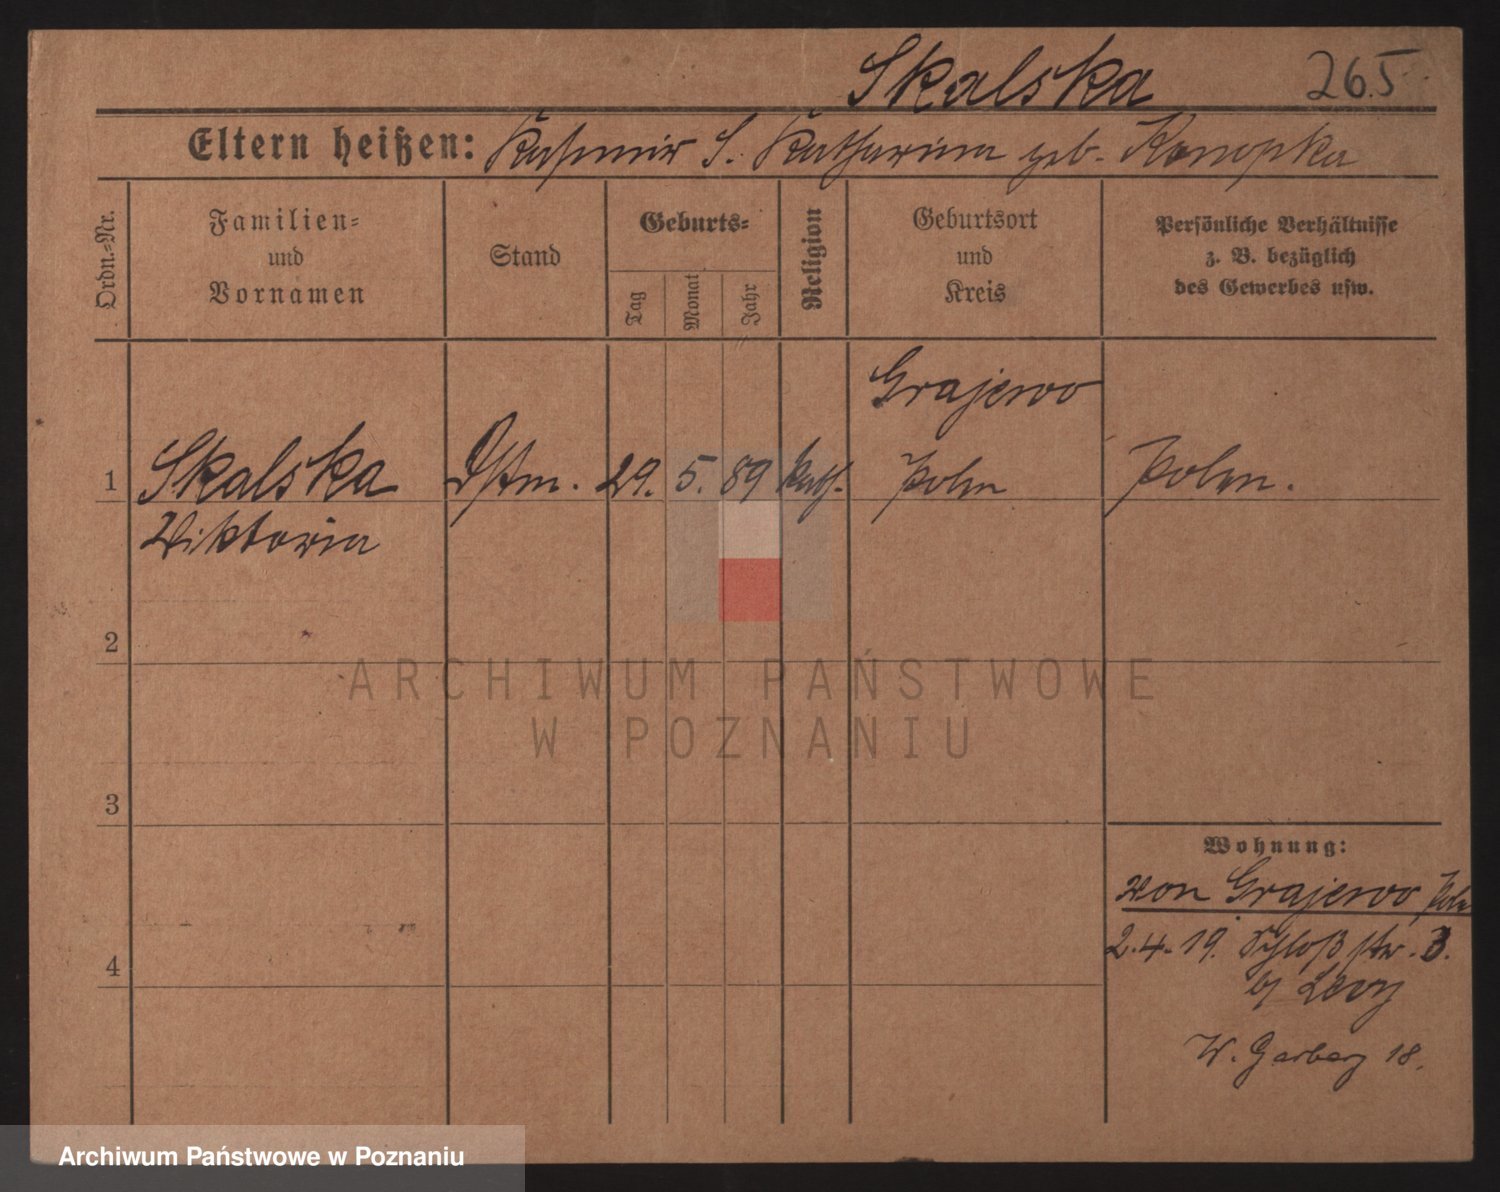 Skalska 265
Eltern heißen: Kasimir S. Katharina geb. Konopka
Ordn.-Nr.
Familien-
und
Vornamen
Stand
Geburts-
Tag
Monat
Jahr
Religion
Geburtsort
und
Kreis
Persönliche Verhältnisse
z. B. bezüglich
des Gewerbes usw.
Grajewo
1 Skalska Dstm. 29. 5. 89 kath. Polen Polen.
Wiktoria
2
ARCHIWUM PAŃSTWOWE
W POZNANIU
3
Wohnung:
von Grajewo, Polen
2.4.19. Schloßstr. 3.
b/ Levy
4
W. Garbary 18.
Archiwum Państwowe w Poznaniu